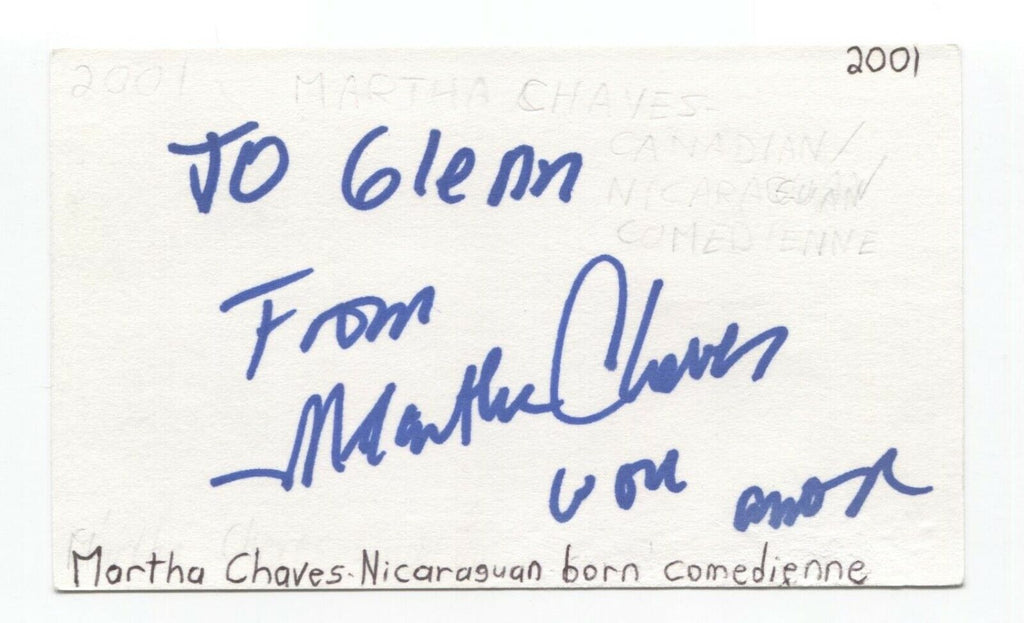 2001
2001 MARTHA CHAVES
CANADIAN/
NICARAGUAN
COMEDIENNE
TO Glenn
From
Martha Chaves
con amor
Martha Chaves-Nicaraguan born comedienne